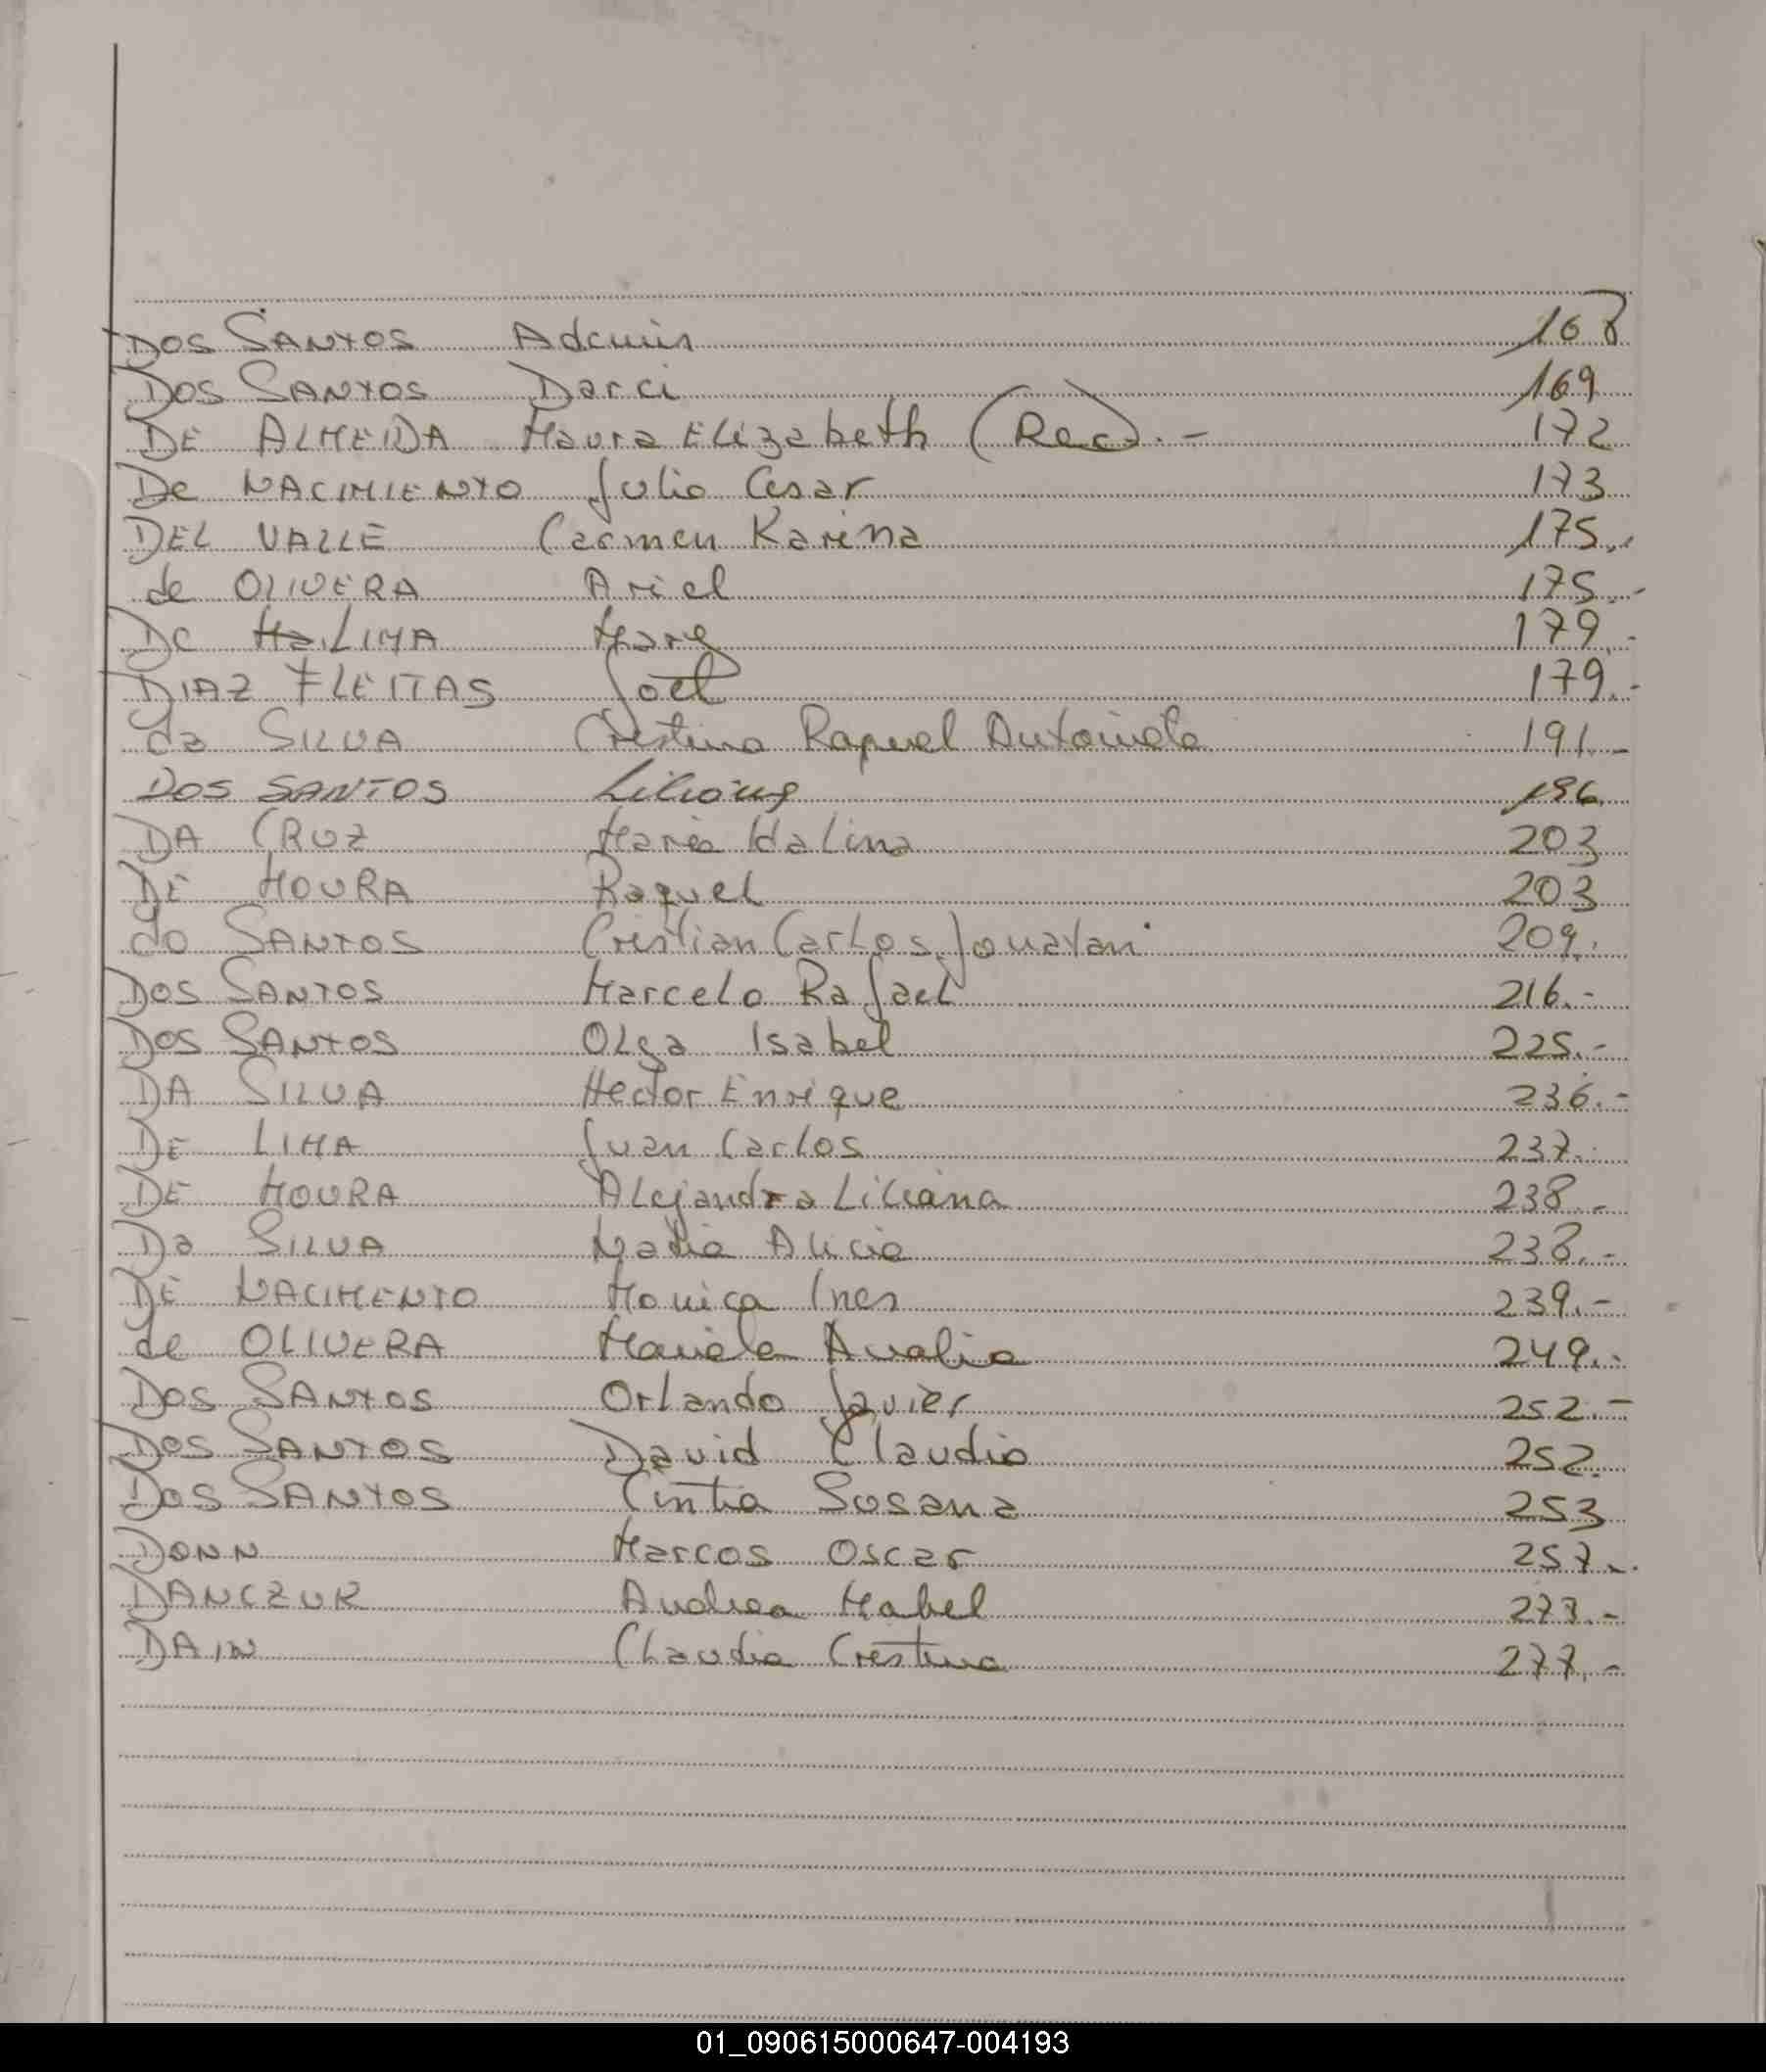 DOS SANTOS Adcuis 168
DOS SANTOS Darci 169
DE ALMEIDA Maura Elizabeth (Rec). - 172
De NACIMIENTO Julio Cesar 173
DEL VALLE Carmen Karina 175.-
de OLIVERA Ariel 175.-
De LIMA Mary 179.-
DIAZ FLEITAS Joel 179.-
da SILVA Cristina Raquel Antonieta 191.-
DOS SANTOS Liliana 196.
DA CRUZ Maria Idalina 203
DE MOURA Raquel 203
do SANTOS Cristian Carlos Jonatan 209.
DOS SANTOS Marcelo Rafael 216.-
DOS SANTOS Olga Isabel 225.-
DA SILVA Hector Enrique 236.-
DE LIMA Juan Carlos 237.-
DE MOURA Alejandra Liliana 238.-
Da SILVA Maria Alicia 238.-
DE NACIMENTO Monica Ines 239.-
de OLIVERA Mariela Analia 249.-
DOS SANTOS Orlando Javier 252.-
DOS SANTOS David Claudio 252.
DOS SANTOS Cintia Susana 253
DONN Marcos Oscar 257.-
DANCZUK Andrea Mabel 277.-
DAIN Claudia Cristina 277.-
01_090615000647-004193